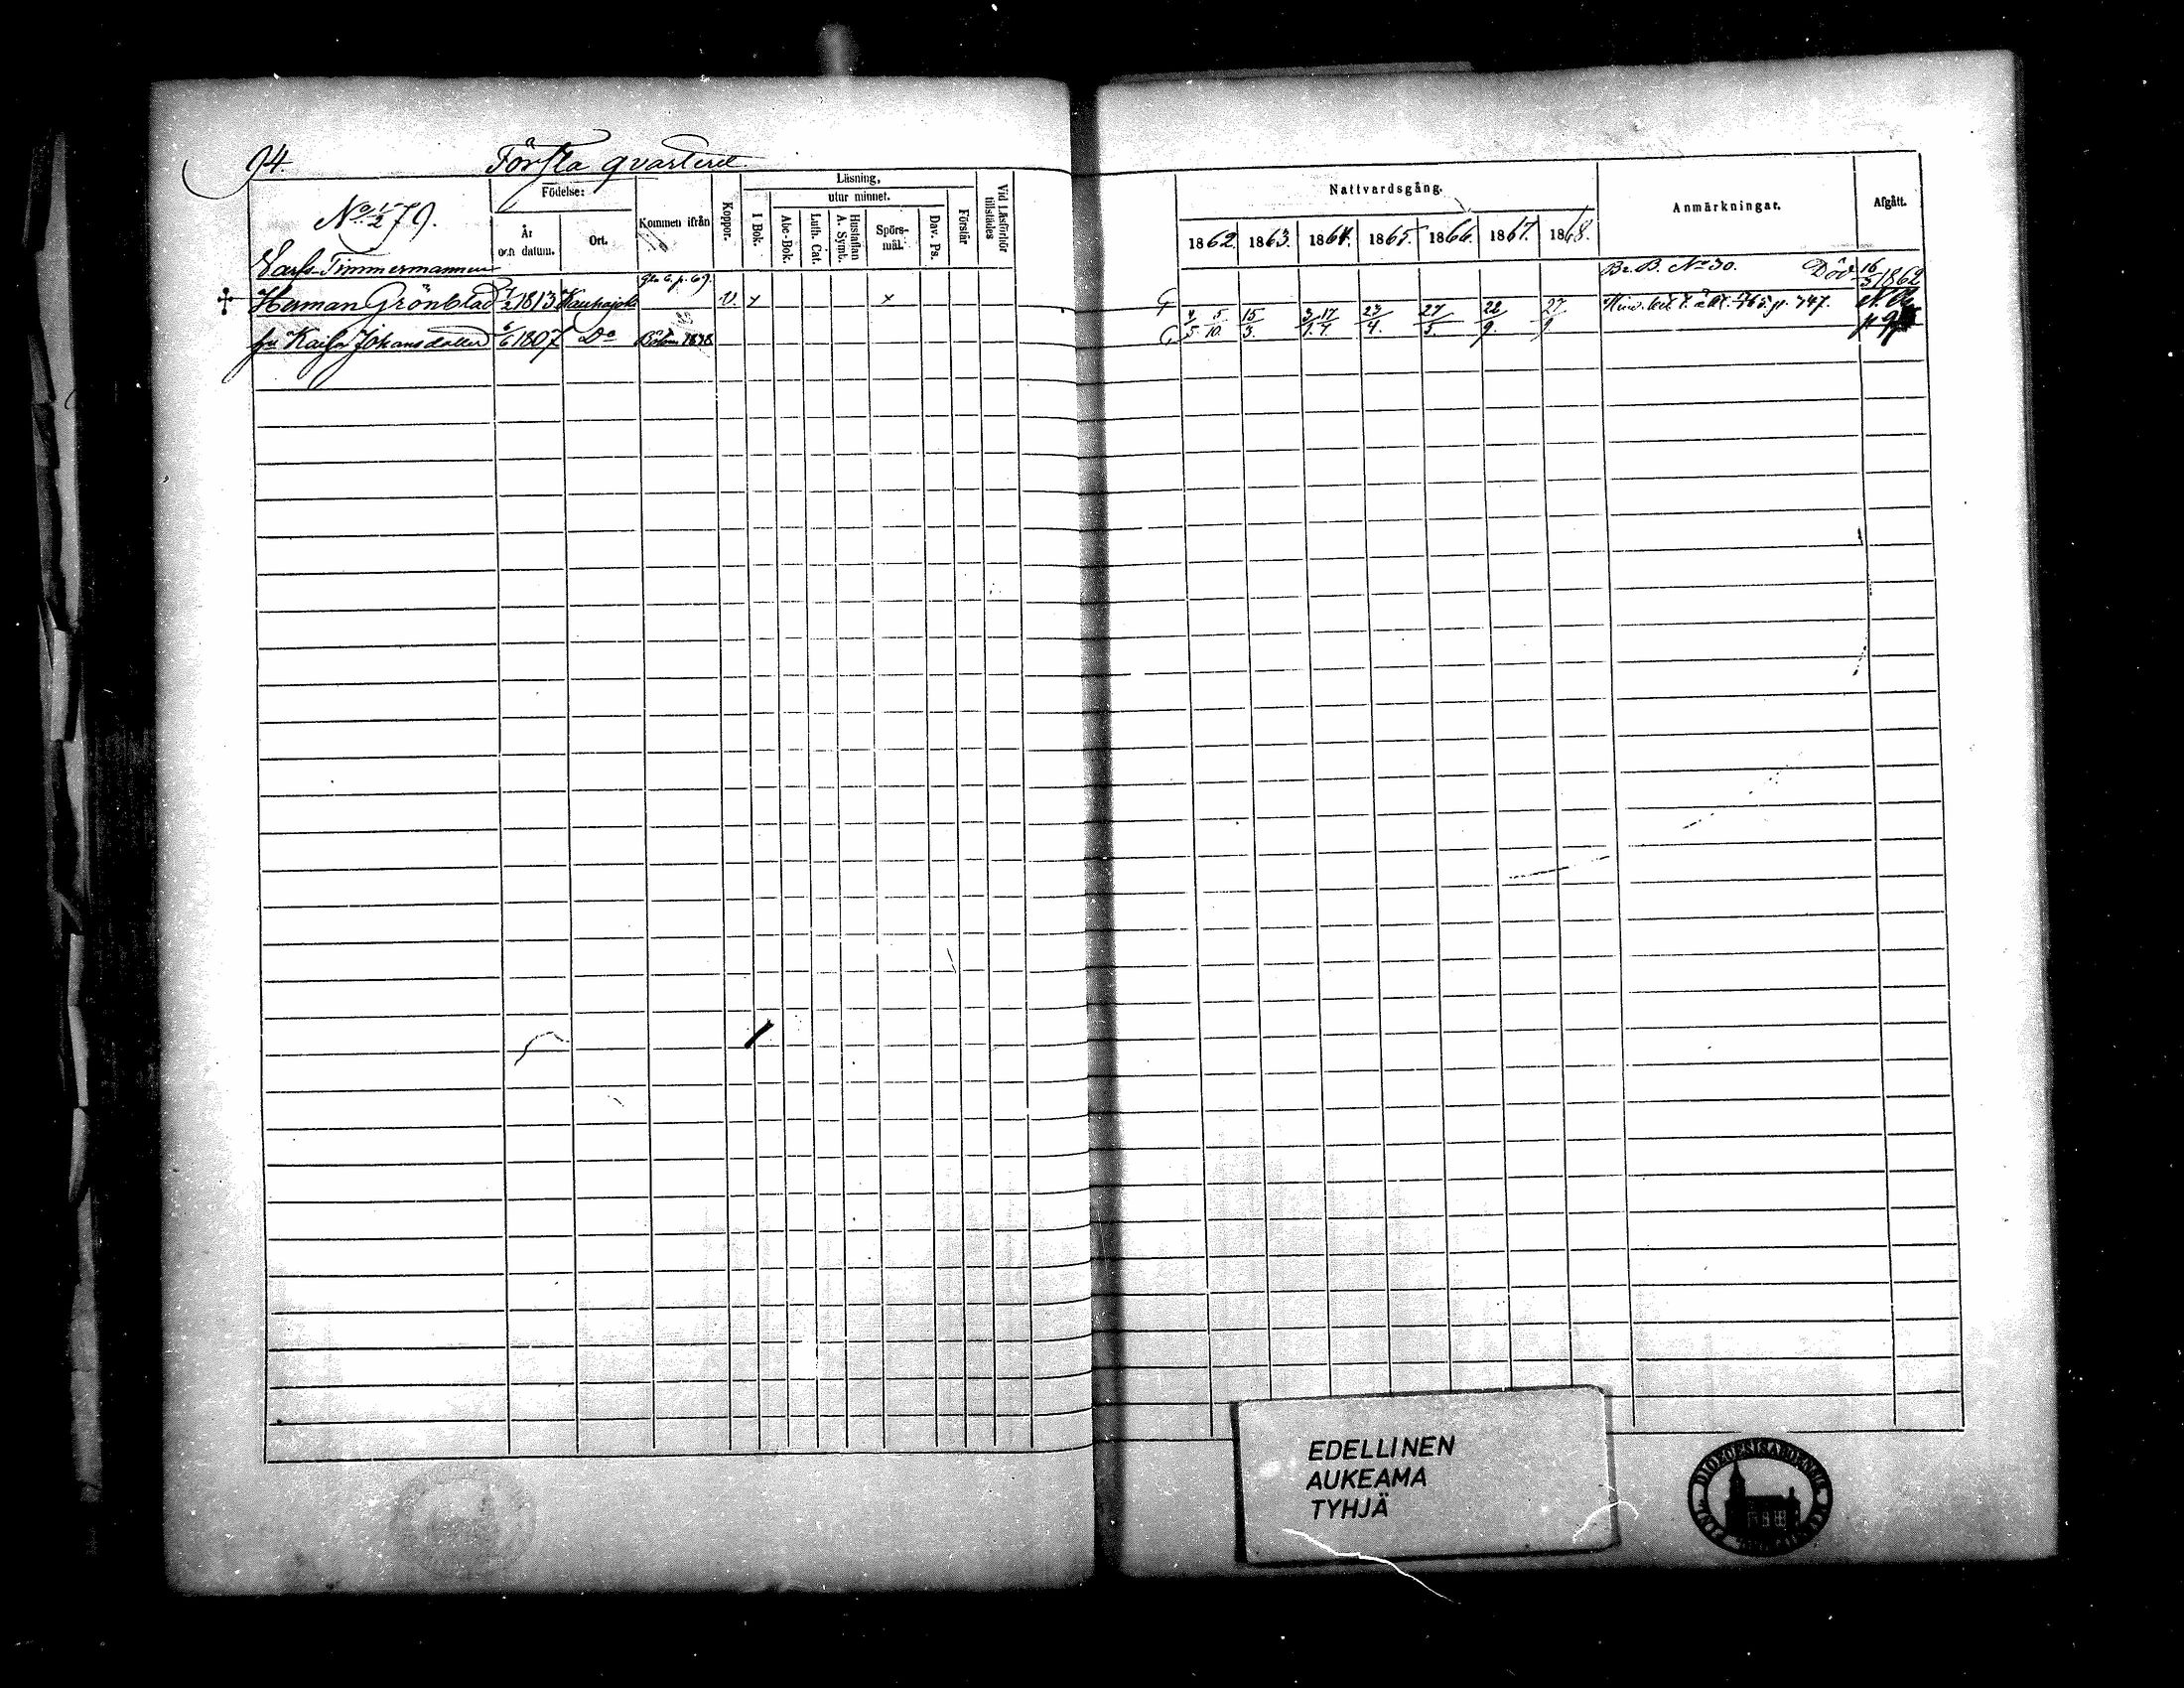 94. Första qvarteret
No ½ 79.
Födelse:
År och datum.
Ort.
Kommen ifrån
Koppor.
Läsning,
I Bok.
utur minnet.
Abc-Bok.
Luth. Cat.
Hustaflan A. Symb.
Spörsmål.
Dav. Ps.
Förstår
Vid Läsförhör tillstädes
Nattvardsgång.
1862. 1863. 1864. 1865. 1866. 1867. 1868.
Anmärkningar.
Afgått.
Varfs-Timmermannen
p. 69. Br. B. No 30. Död 16/5 1862
Herman Grönblad 1813 Kauhajoki V. x x
hu Kaisa Johansdotter 6/6 1807 Do 4/5 5/10. 15/3. 3/1. 17/7. 23/4. 27/5. 22/9. 27/9 p. 747.
EDELLINEN
AUKEAMA
TYHJÄ